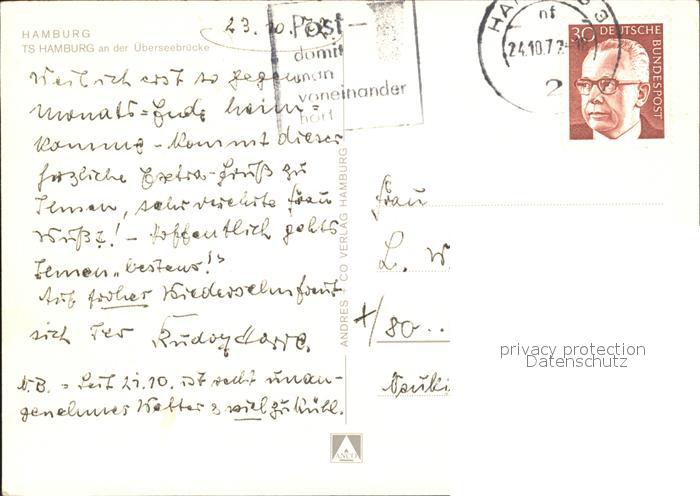 HAMBURG
TS HAMBURG an der Überseebrücke
23.10.
Weil ich erst so gegen
Monats=Ende heim=
komme - kommt dieser
herzliche Extra=Gruß zu
Ihnen, sehr verehrte Frau
! - Hoffentlich gehts
Ihnen „bestens"!
Auf frohes Wiedersehn freut
sich Ihr Rudolf
N.B. = Seit 21.10. ist recht unan-
genehmes Wetter & viel zu kühl.
ANDRES CO VERLAG HAMBURG
ANCO
Post -
damit
man
voneinander
hört
HA
nf
24.10.7
2
30 DEUTSCHE
BUNDESPOST
Frau
L. W
80..
privacy protection
Datenschutz